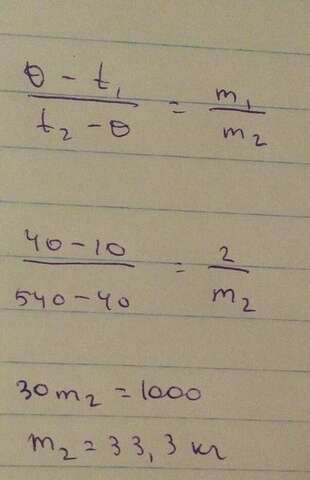 θ - t₁ / t₂ - θ = m₁ / m₂
40-10 / 540-40 = 2 / m₂
30m₂ = 1000
m₂ = 33,3 кг